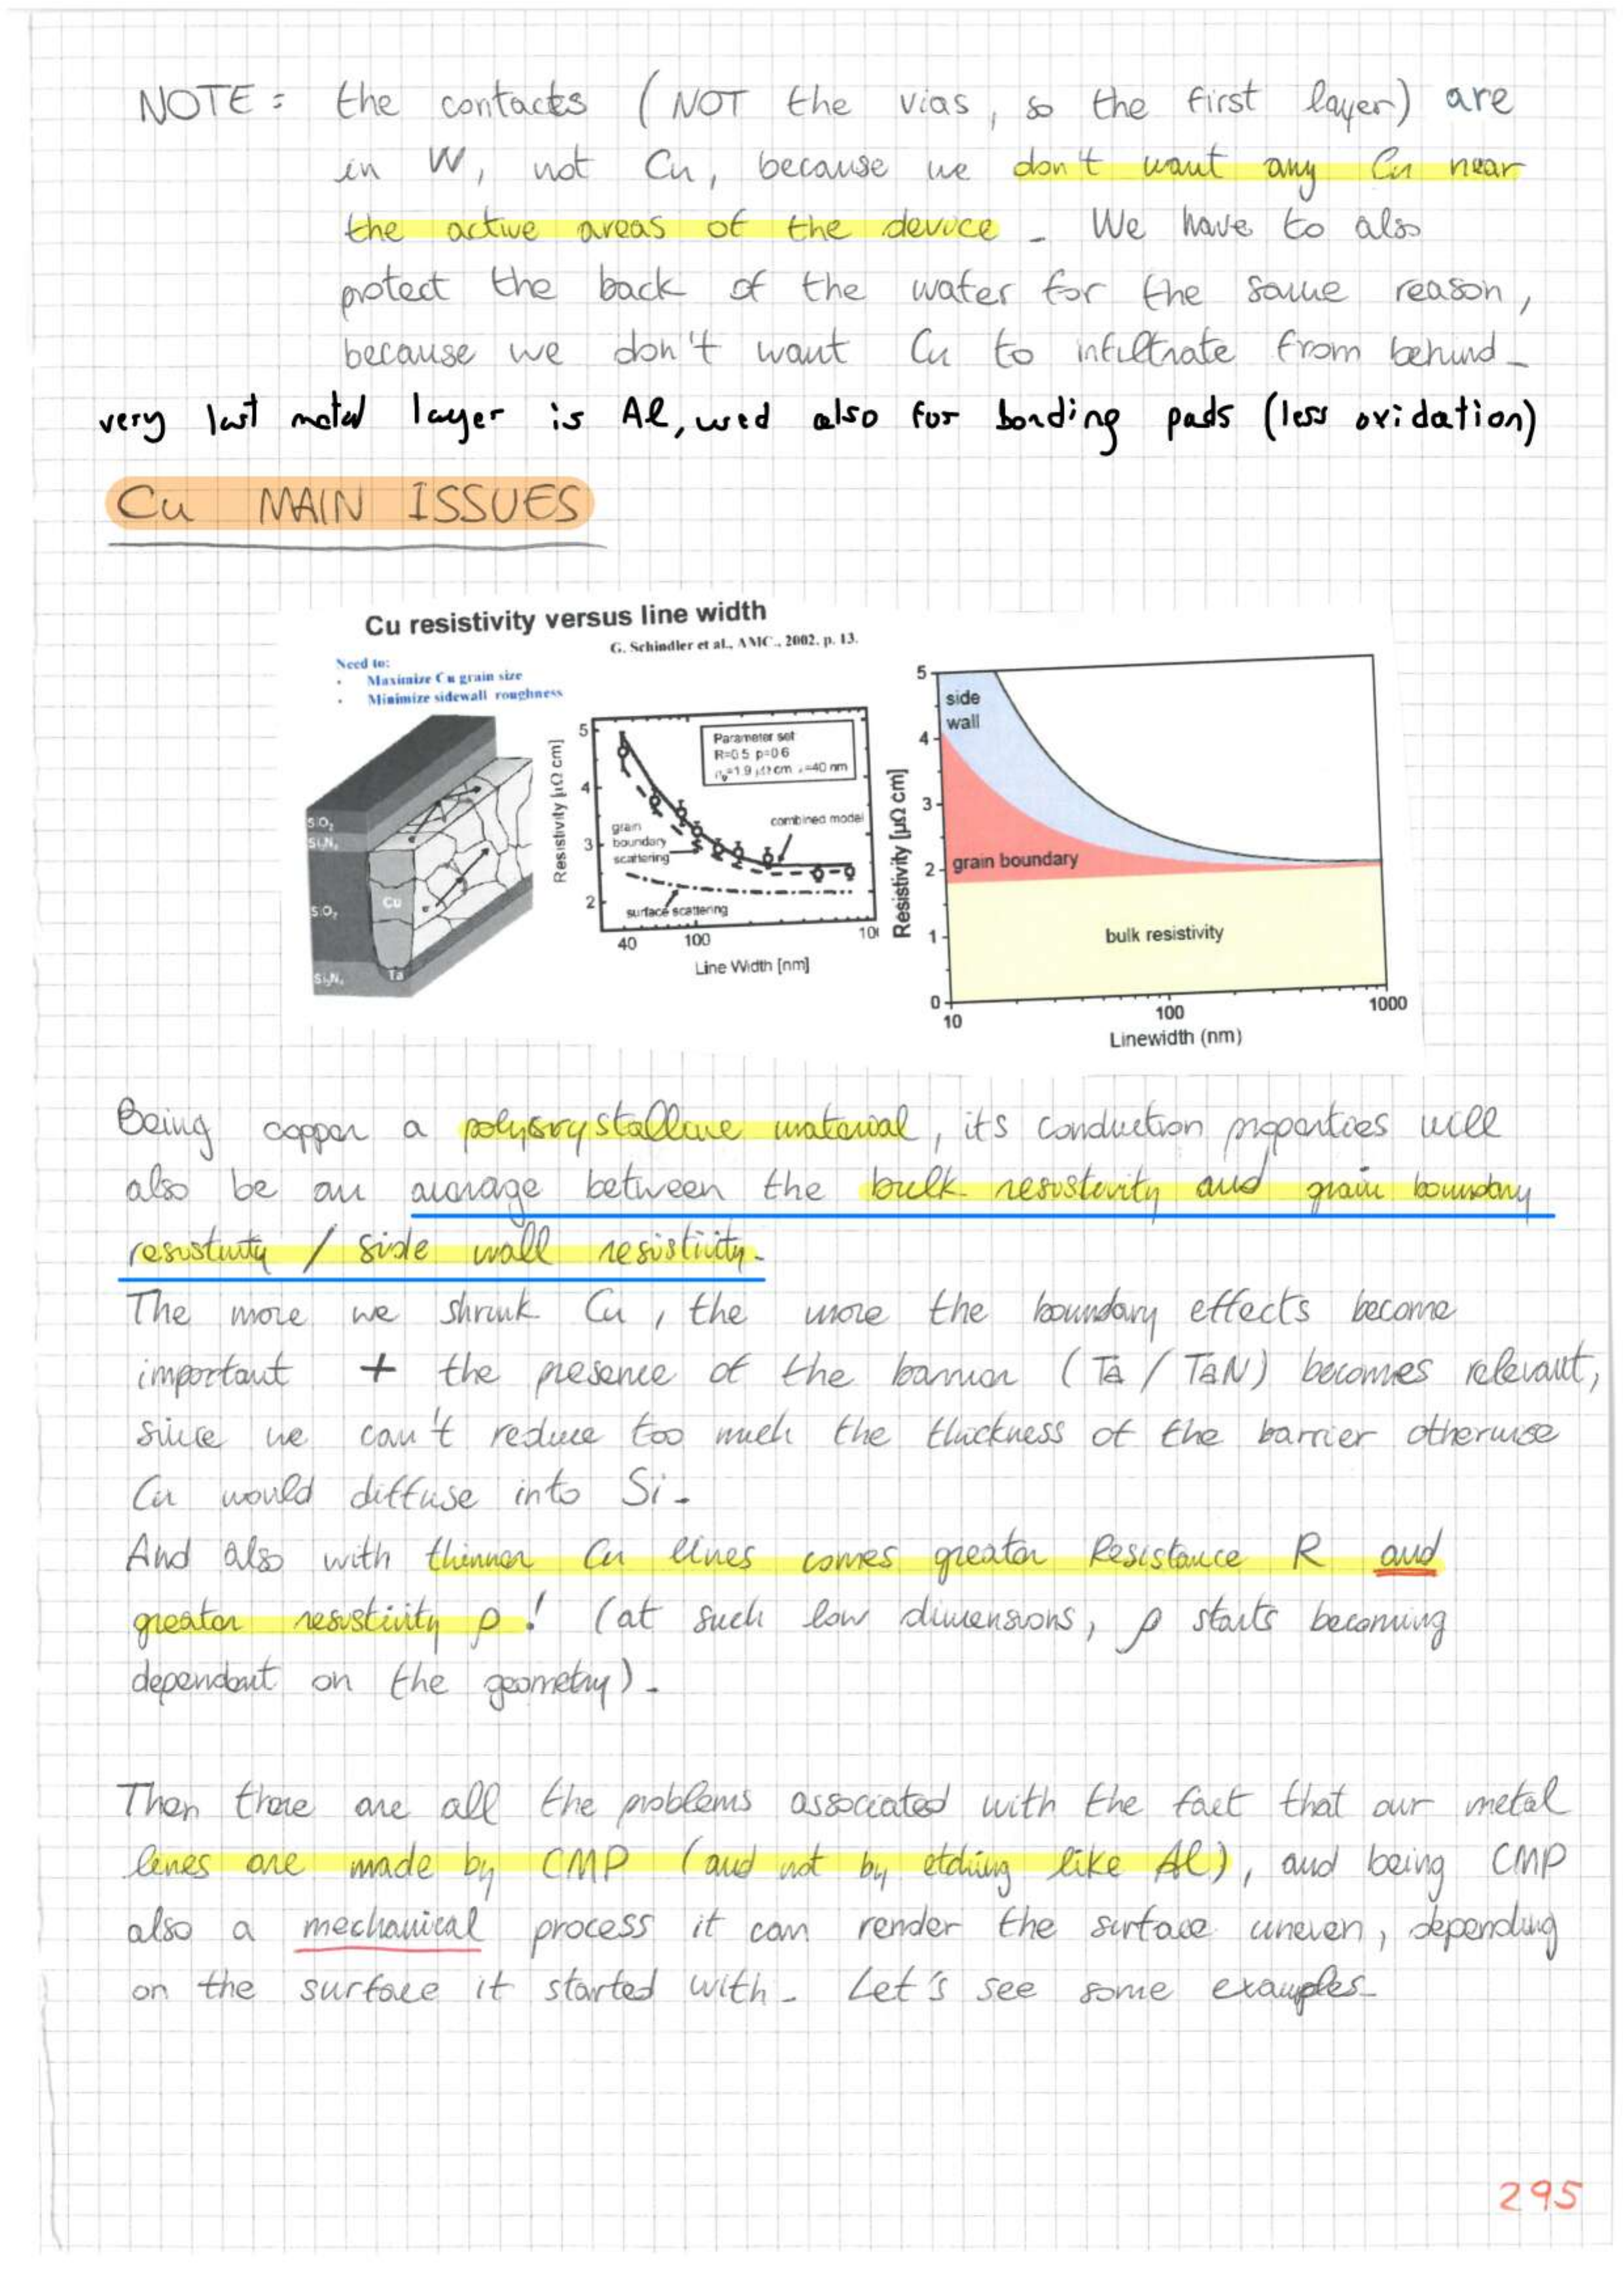 NOTE: the contacts (NOT the vias, so the first layer) are
in W, not Cu, because we don't want any Cu near
the active areas of the device. We have to also
protect the back of the wafer for the same reason,
because we don't want Cu to infiltrate from behind.
very last metal layer is Al, used also for bonding pads (less oxidation)
Cu MAIN ISSUES
Cu resistivity versus line width
G. Schindler et al., AMC., 2002. p. 13.
Need to:
• Maximize Cu grain size
• Minimize sidewall roughness
SiO₂
Si₃N₄
Cu
SiO₂
Si₃N₄
Ta
Resistivity [µΩ cm]
5
4
3
2
Parameter set
R=0.5 p=0.6
=1.9 µΩ cm =40 nm
grain
boundary
scattering
combined model
surface scattering
40
100
10
Line Width [nm]
Resistivity [µΩ cm]
5
4
3
2
1
0
side
wall
grain boundary
bulk resistivity
10
100
1000
Linewidth (nm)
Being copper a polycrystalline material, its conduction properties will
also be an average between the bulk resistivity and grain boundary
resistivity / side wall resistivity.
The more we shrink Cu, the more the boundary effects become
important + the presence of the barrier (Ta / TaN) becomes relevant,
since we can't reduce too much the thickness of the barrier otherwise
Cu would diffuse into Si.
And also with thinner Cu lines comes greater Resistance R and
greater resistivity ρ! (at such low dimensions, ρ starts becoming
dependent on the geometry).
Then there are all the problems associated with the fact that our metal
lines are made by CMP (and not by etching like Al), and being CMP
also a mechanical process it can render the surface uneven, depending
on the surface it started with. Let's see some examples.
295